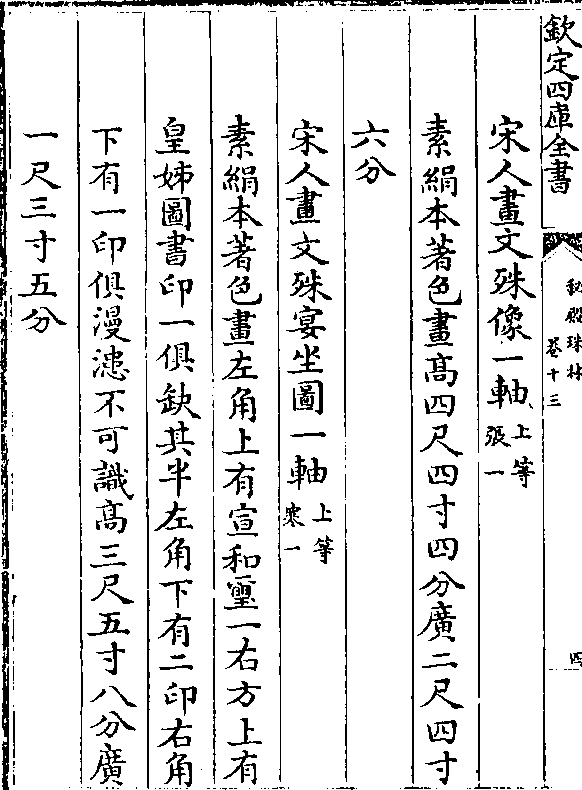 欽定四庫全書
秘殿珠林
卷十三
四
宋人畫文殊像一軸上等張一
素絹本著色畫高四尺四寸四分廣二尺四寸
六分
宋人畫文殊宴坐圖一軸上等寒一
素絹本著色畫左角上有宣和璽一右方上有
皇姊圖書印一俱缺其半左角下有二印右角
下有一印俱漫漶不可識高三尺五寸八分廣
一尺三寸五分